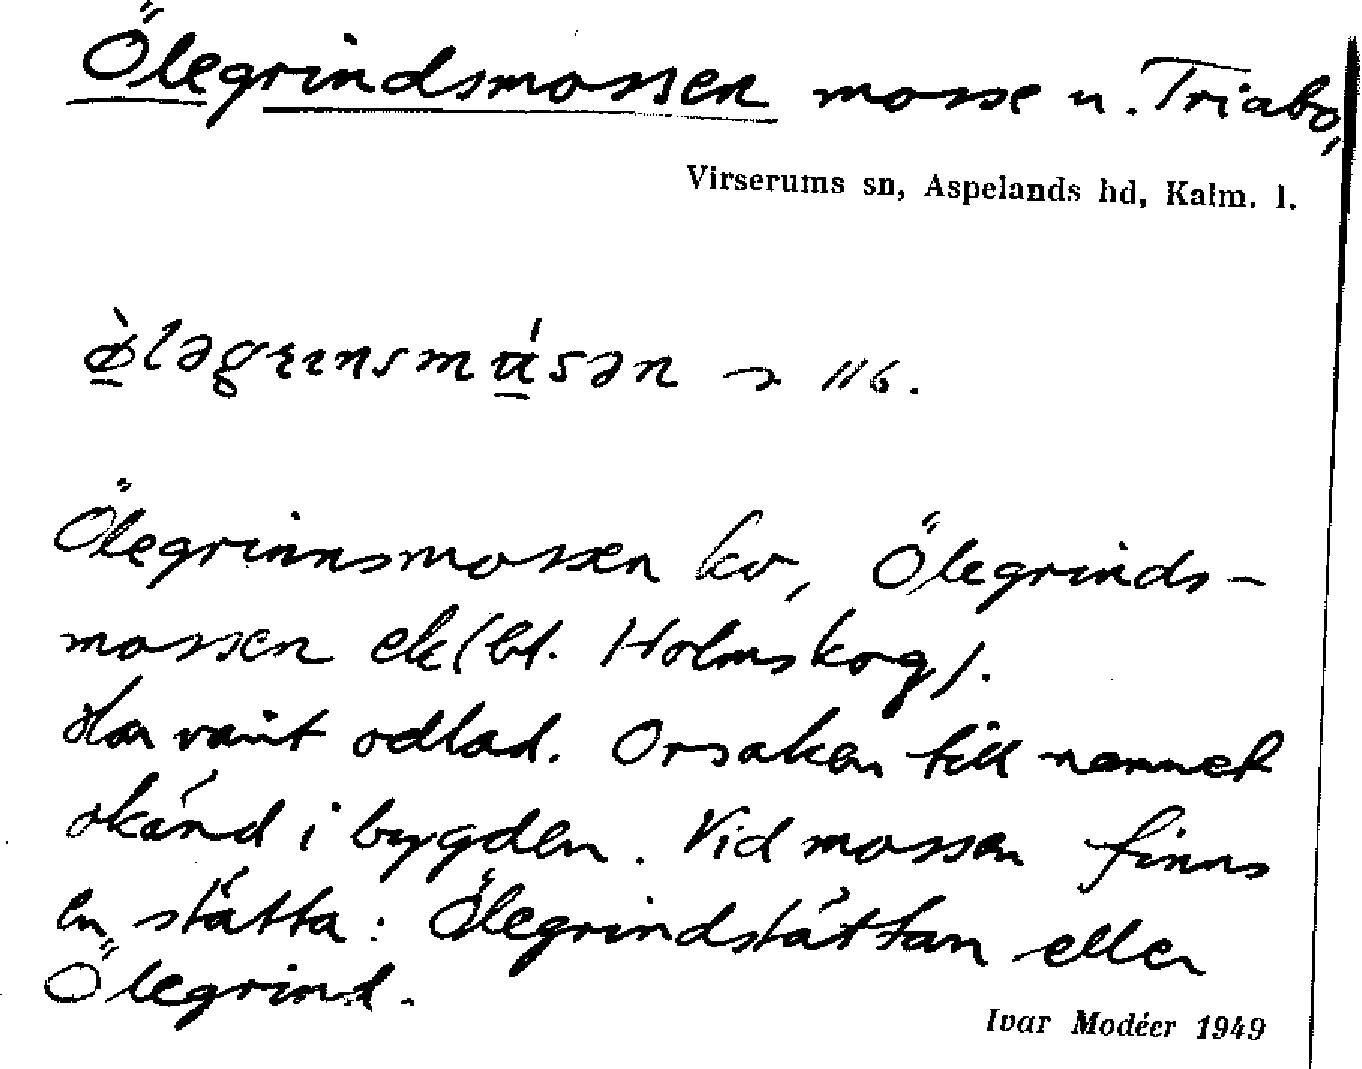 Ölegrindsmossen mosse u. Triabo,
Virserums sn, Aspelands hd, Kalm. l.
116.
Ölegrinnsmossen kv, Ölegrinds-
mossen ek (bl. Holmskog).
Har varit odlad. Orsaken till namnet
okänd i bygden. Vid mossen finns
en stätta: Ölegrindstättan eller
Ölegrind.
Ivar Modéer 1949